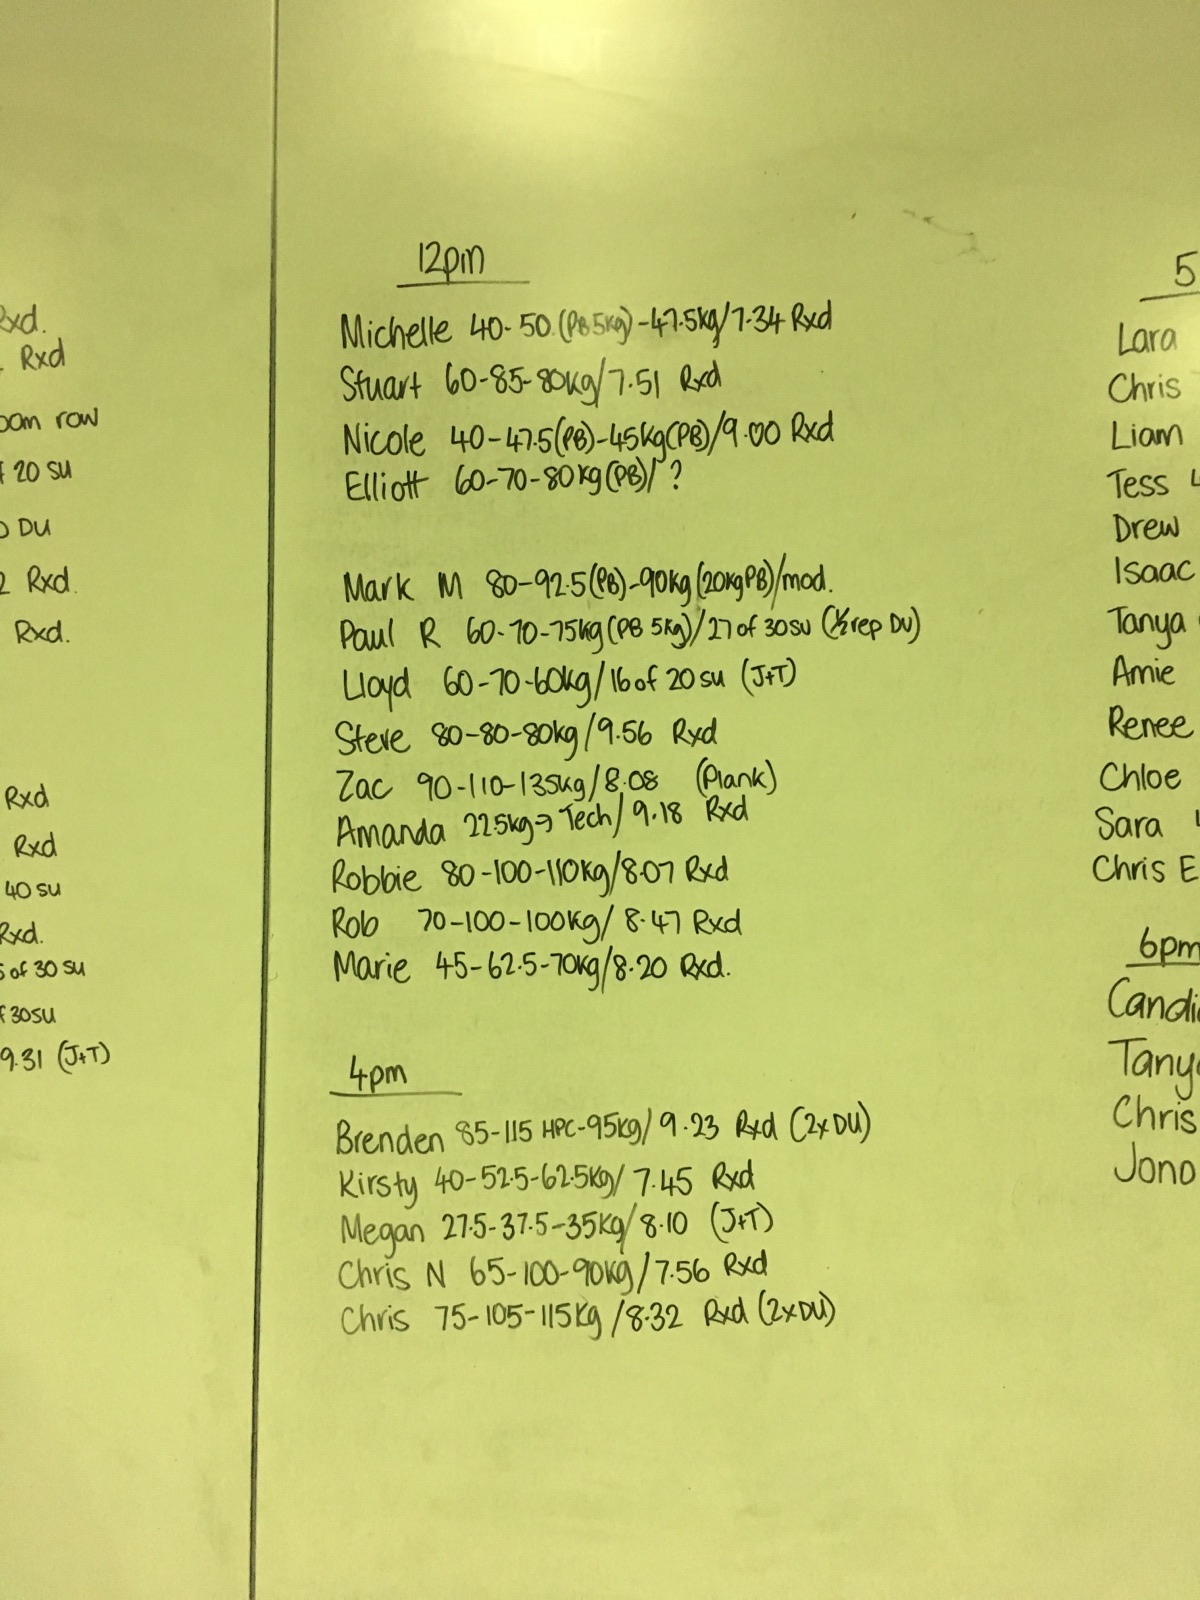 Rxd.
Rxd
row
20 SU
DU
2 Rxd.
Rxd.
Rxd
Rxd
40 SU
Rxd.
of 30 SU
30SU
9.31 (J+T)
12pm
Michelle 40-50 (PB 5kg) -47.5kg/7.34 Rxd
Stuart 60-85-80kg/7.51 Rxd
Nicole 40-47.5(PB)-45kg(PB)/9.00 Rxd
Elliott 60-70-80kg(PB)/ ?
Mark M 80-92.5(PB)-90kg(20kgPB)/mod.
Paul R 60-70-75kg(PB 5kg)/27 of 30SU (½ rep DU)
Lloyd 60-70-60kg/16 of 20 SU (J+T)
Steve 80-80-80kg/9.56 Rxd
Zac 90-110-135kg/8.08 (Plank)
Amanda 22.5kg→Tech/9.18 Rxd
Robbie 80-100-110kg/8.07 Rxd
Rob 70-100-100kg/ 8.47 Rxd
Marie 45-62.5-70kg/8.20 Rxd.
4pm
Brenden 85-115 HPC-95kg/ 9.23 Rxd (2xDU)
Kirsty 40-52.5-62.5kg/ 7.45 Rxd
Megan 27.5-37.5-35kg/8.10 (J+T)
Chris N 65-100-90kg/7.56 Rxd
Chris 75-105-115kg/8.32 Rxd (2xDU)
5
Lara
Chris
Liam
Tess
Drew
Isaac
Tanya
Amie
Renee
Chloe
Sara
Chris E
6pm
Tanya
Chris
Jono